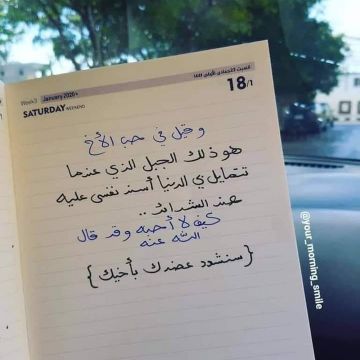 Week3 January 2020
SATURDAY WEEKEND
18/1
و قيل في حب الأخ
هو ذلك الجبل الذي عندما
تتمايل بي الدنيا أسند نفسي عليه
عند الشدائد ..
كيف لا أحبه وقد قال
الله عنه
{سنشدد عضدك بأخيك}
@your_morning_smile